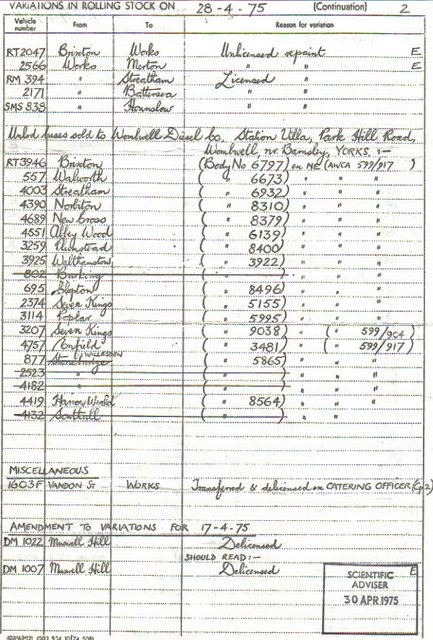 VARIATIONS IN ROLLING STOCK ON 28-4-75 (Continuation) 2
Vehicle number From To Reason for variation
RT2047 Brixton Works Unlicensed repaint E
2566 Works Merton " " E
RM 394 " Streatham Licensed "
2171 " Battersea " "
SMS 838 " Hounslow " "
Unlcd buses sold to Wombwell Diesel Co, Station Villa, Park Hill Road,
Wombwell, nr. Barnsley, YORKS. :-
RT3946 Brixton (Body No 6797) ex NE (AWCA 599/917)
557 Walworth ( " 6673) " " "
4003 Streatham ( " 6932) " " "
4390 Norbiton ( " 8310) " " "
4689 New Cross ( " 8379) " " "
4551 Abbey Wood ( " 6139) " " "
3259 Plumstead ( " 8400) " " "
3925 Walthamstow ( " 3922) " " "
802 Barking ( " ) " "
695 Clapton ( " 8496) " " "
2374 Seven Kings ( " 5155) " " "
3114 Poplar ( " 5995) " " "
3207 Seven Kings ( " 9038) " ( " 599/904)
4757 Enfield ( " 3481) " ( " 599/917)
877 Stonebridge WILLESDEN ( " 5865) " " "
2523 " ( " ) " "
4182 " ( " ) " "
4419 Harrow Weald ( " 8564) " " "
4132 Southall ( " ) " "
MISCELLANEOUS
1603F VANDON St WORKS Transferred & delicensed ex CATERING OFFICER (Gp2)
AMENDMENT TO VARIATIONS FOR 17-4-75
DM 1022 Muswell Hill Delicensed
SHOULD READ:-
DM 1007 Muswell Hill Delicensed E
SCIENTIFIC
ADVISER
30 APR 1975